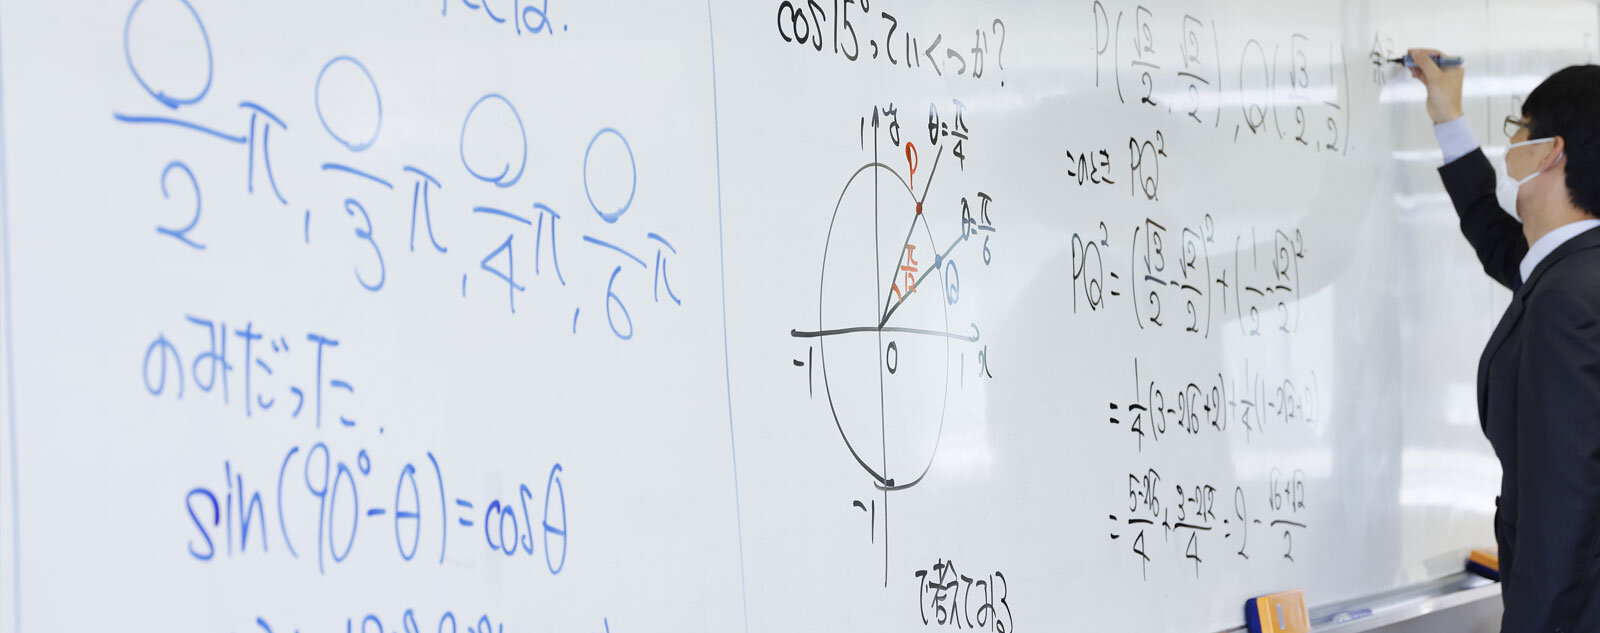 ○/2 π, ○/3 π, ○/4 π, ○/6 π
のみだった.
sin(90°-θ)=cosθ
cos15°,ていくつか?
1 y θ=π/4
P
θ=π/6
π/12 Q
-1 0 1 x
-1
で考えてみる
P(√2/2, √2/2), Q(√3/2, 1/2).
このとき PQ²
PQ²=(√3/2-√2/2)²+(1/2-√2/2)²
=1/4(3-2√6+2)+1/4(1-2√2+2)
=5-2√6/4+3-2√2/4=2-√6+√2/2